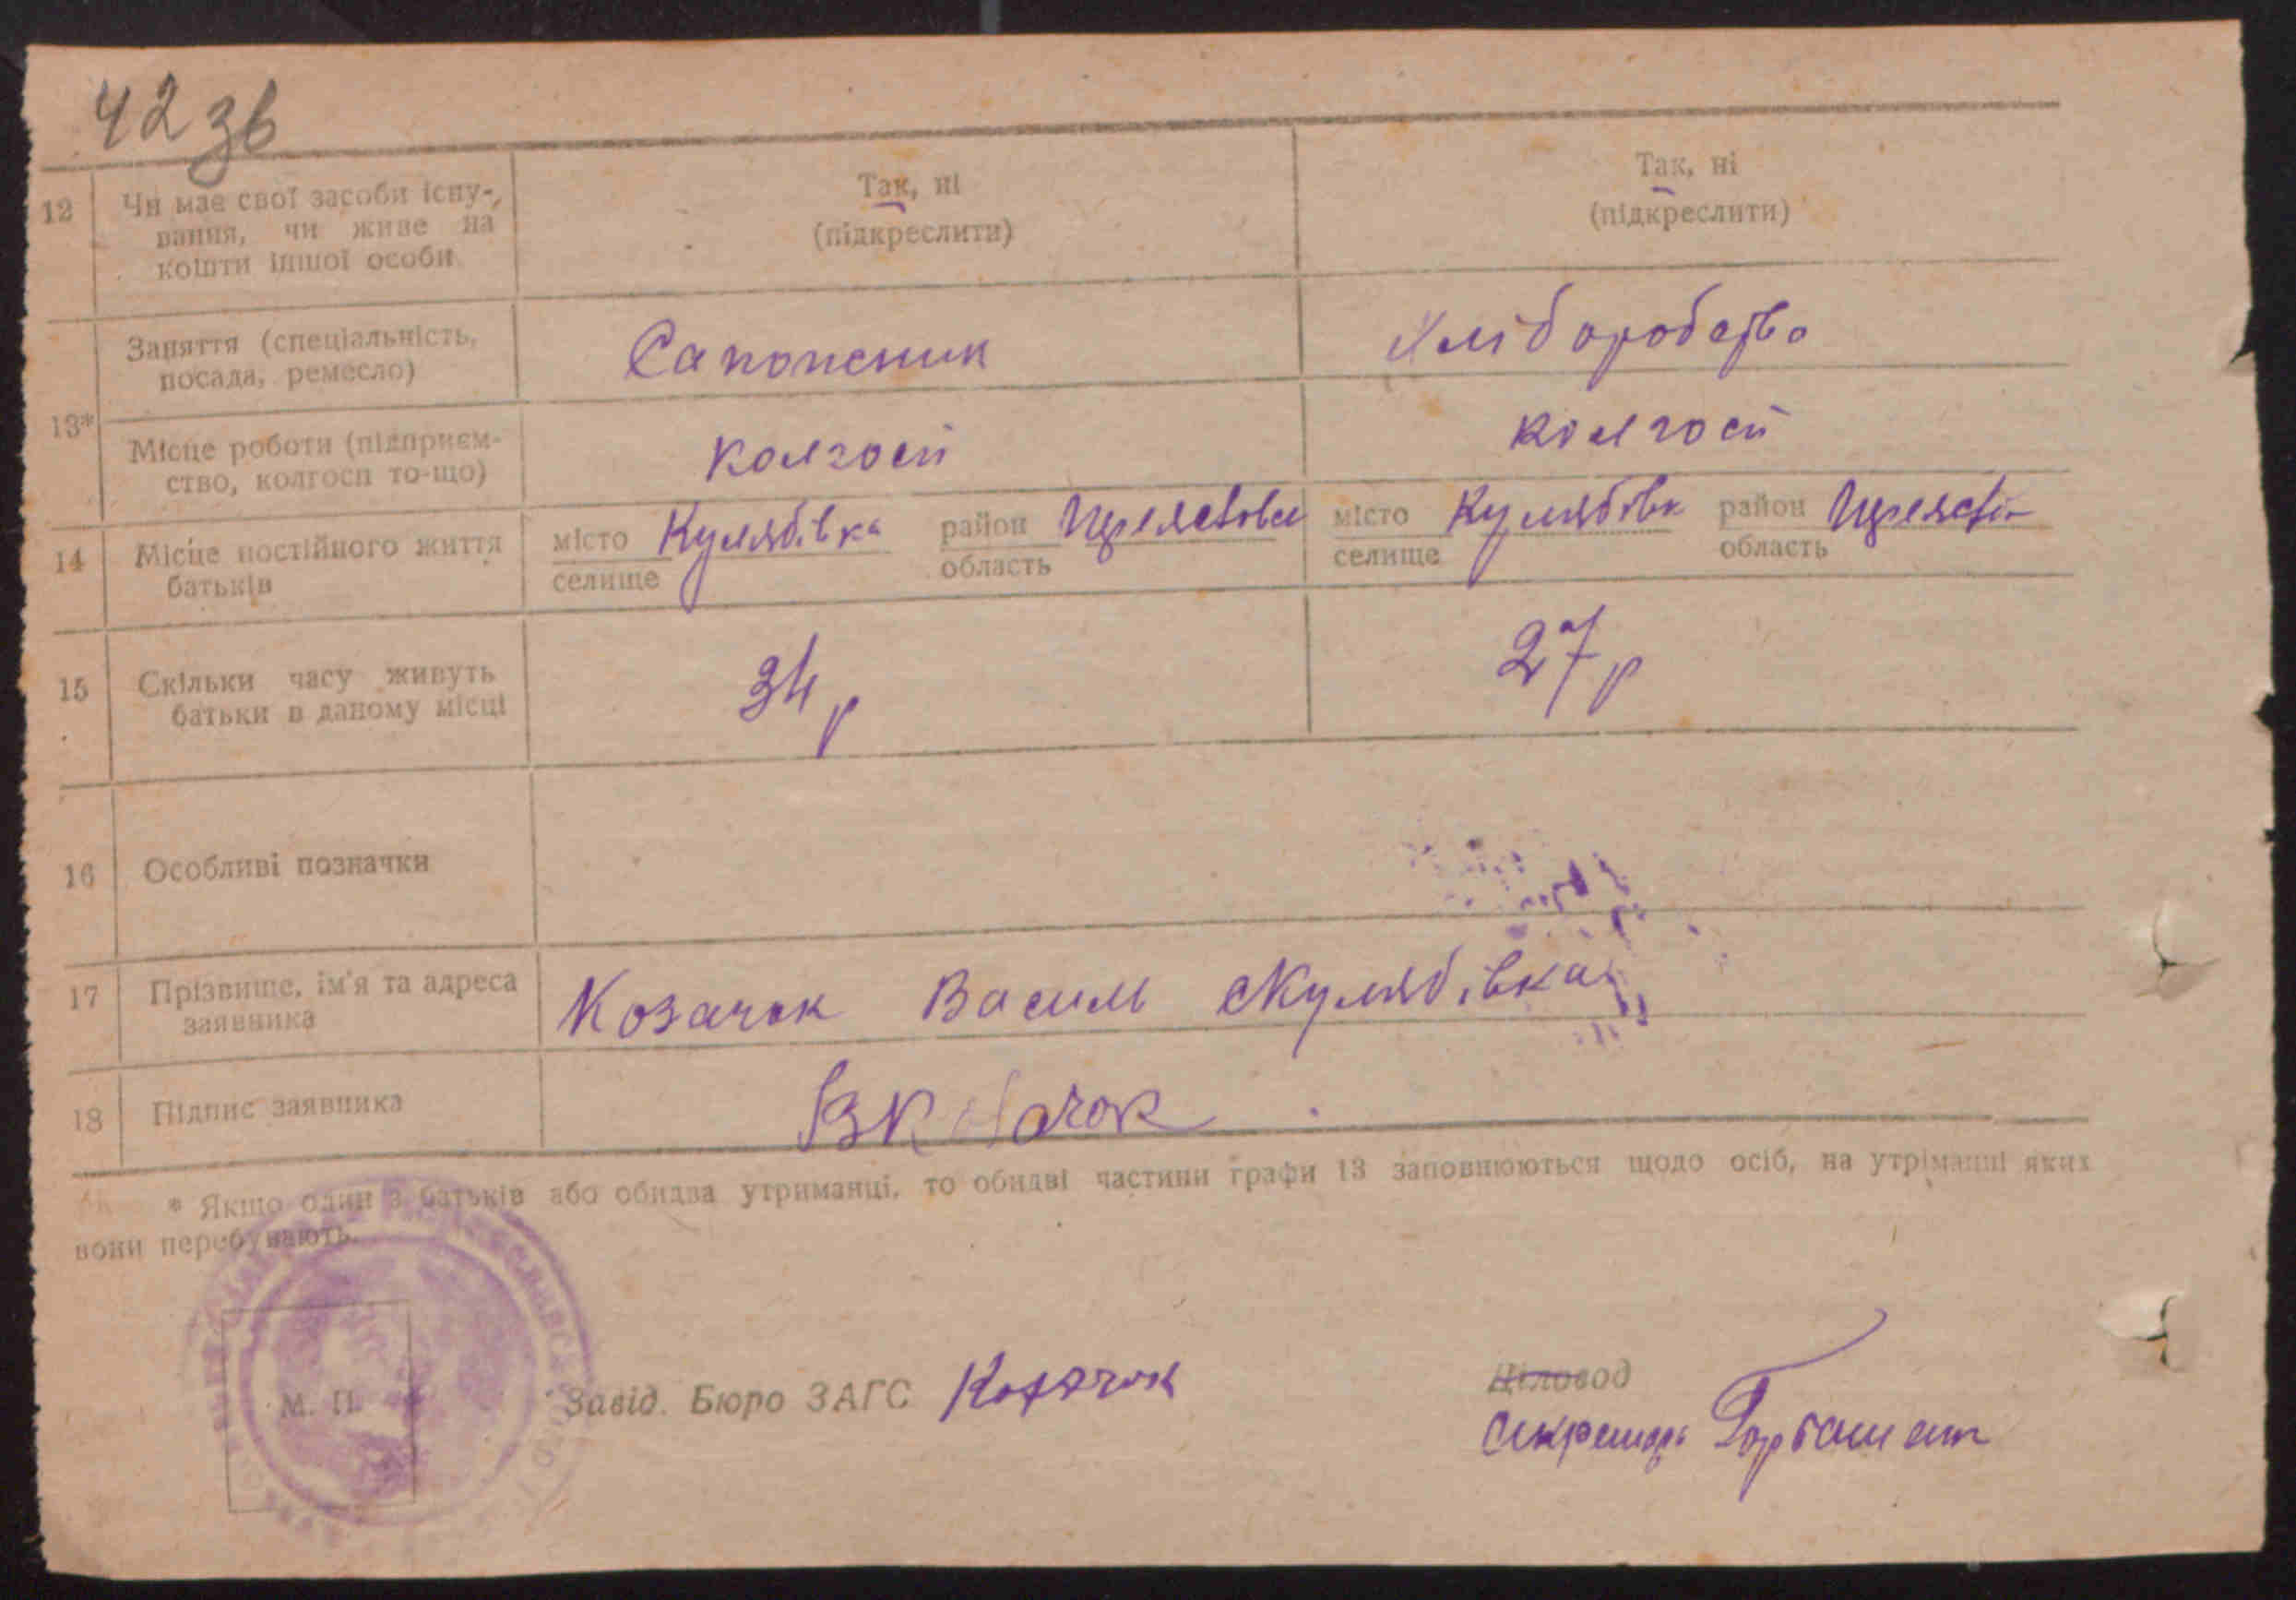 42 зв
12 Чи має свої засоби існу- Так, ні Так, ні
вання, чи живе на (підкреслити) (підкреслити)
кошти іншої особи
13* Заняття (спеціальність, Сапожник Хліборобство
посада, ремесло)
Місце роботи (підприєм- колгосп колгосп
ство, колгосп то-що)
14 Місце постійного життя місто Кулябівка район місто Кулябівк район
батьків селище область селище область
15 Скільки часу живуть 34 р 27 р
батьки в даному місці
16 Особливі позначки
17 Прізвище, ім'я та адреса Козачок Василь с Кулябівка
заявника
18 Підпис заявника ВКозачок
* Якщо один з батьків або обидва утриманці, то обидві частини графи 13 заповнюються щодо осіб, на утріманні яких
вони перебувають.
М. П. Завід. Бюро ЗАГС Козачок Діловод
секретарь